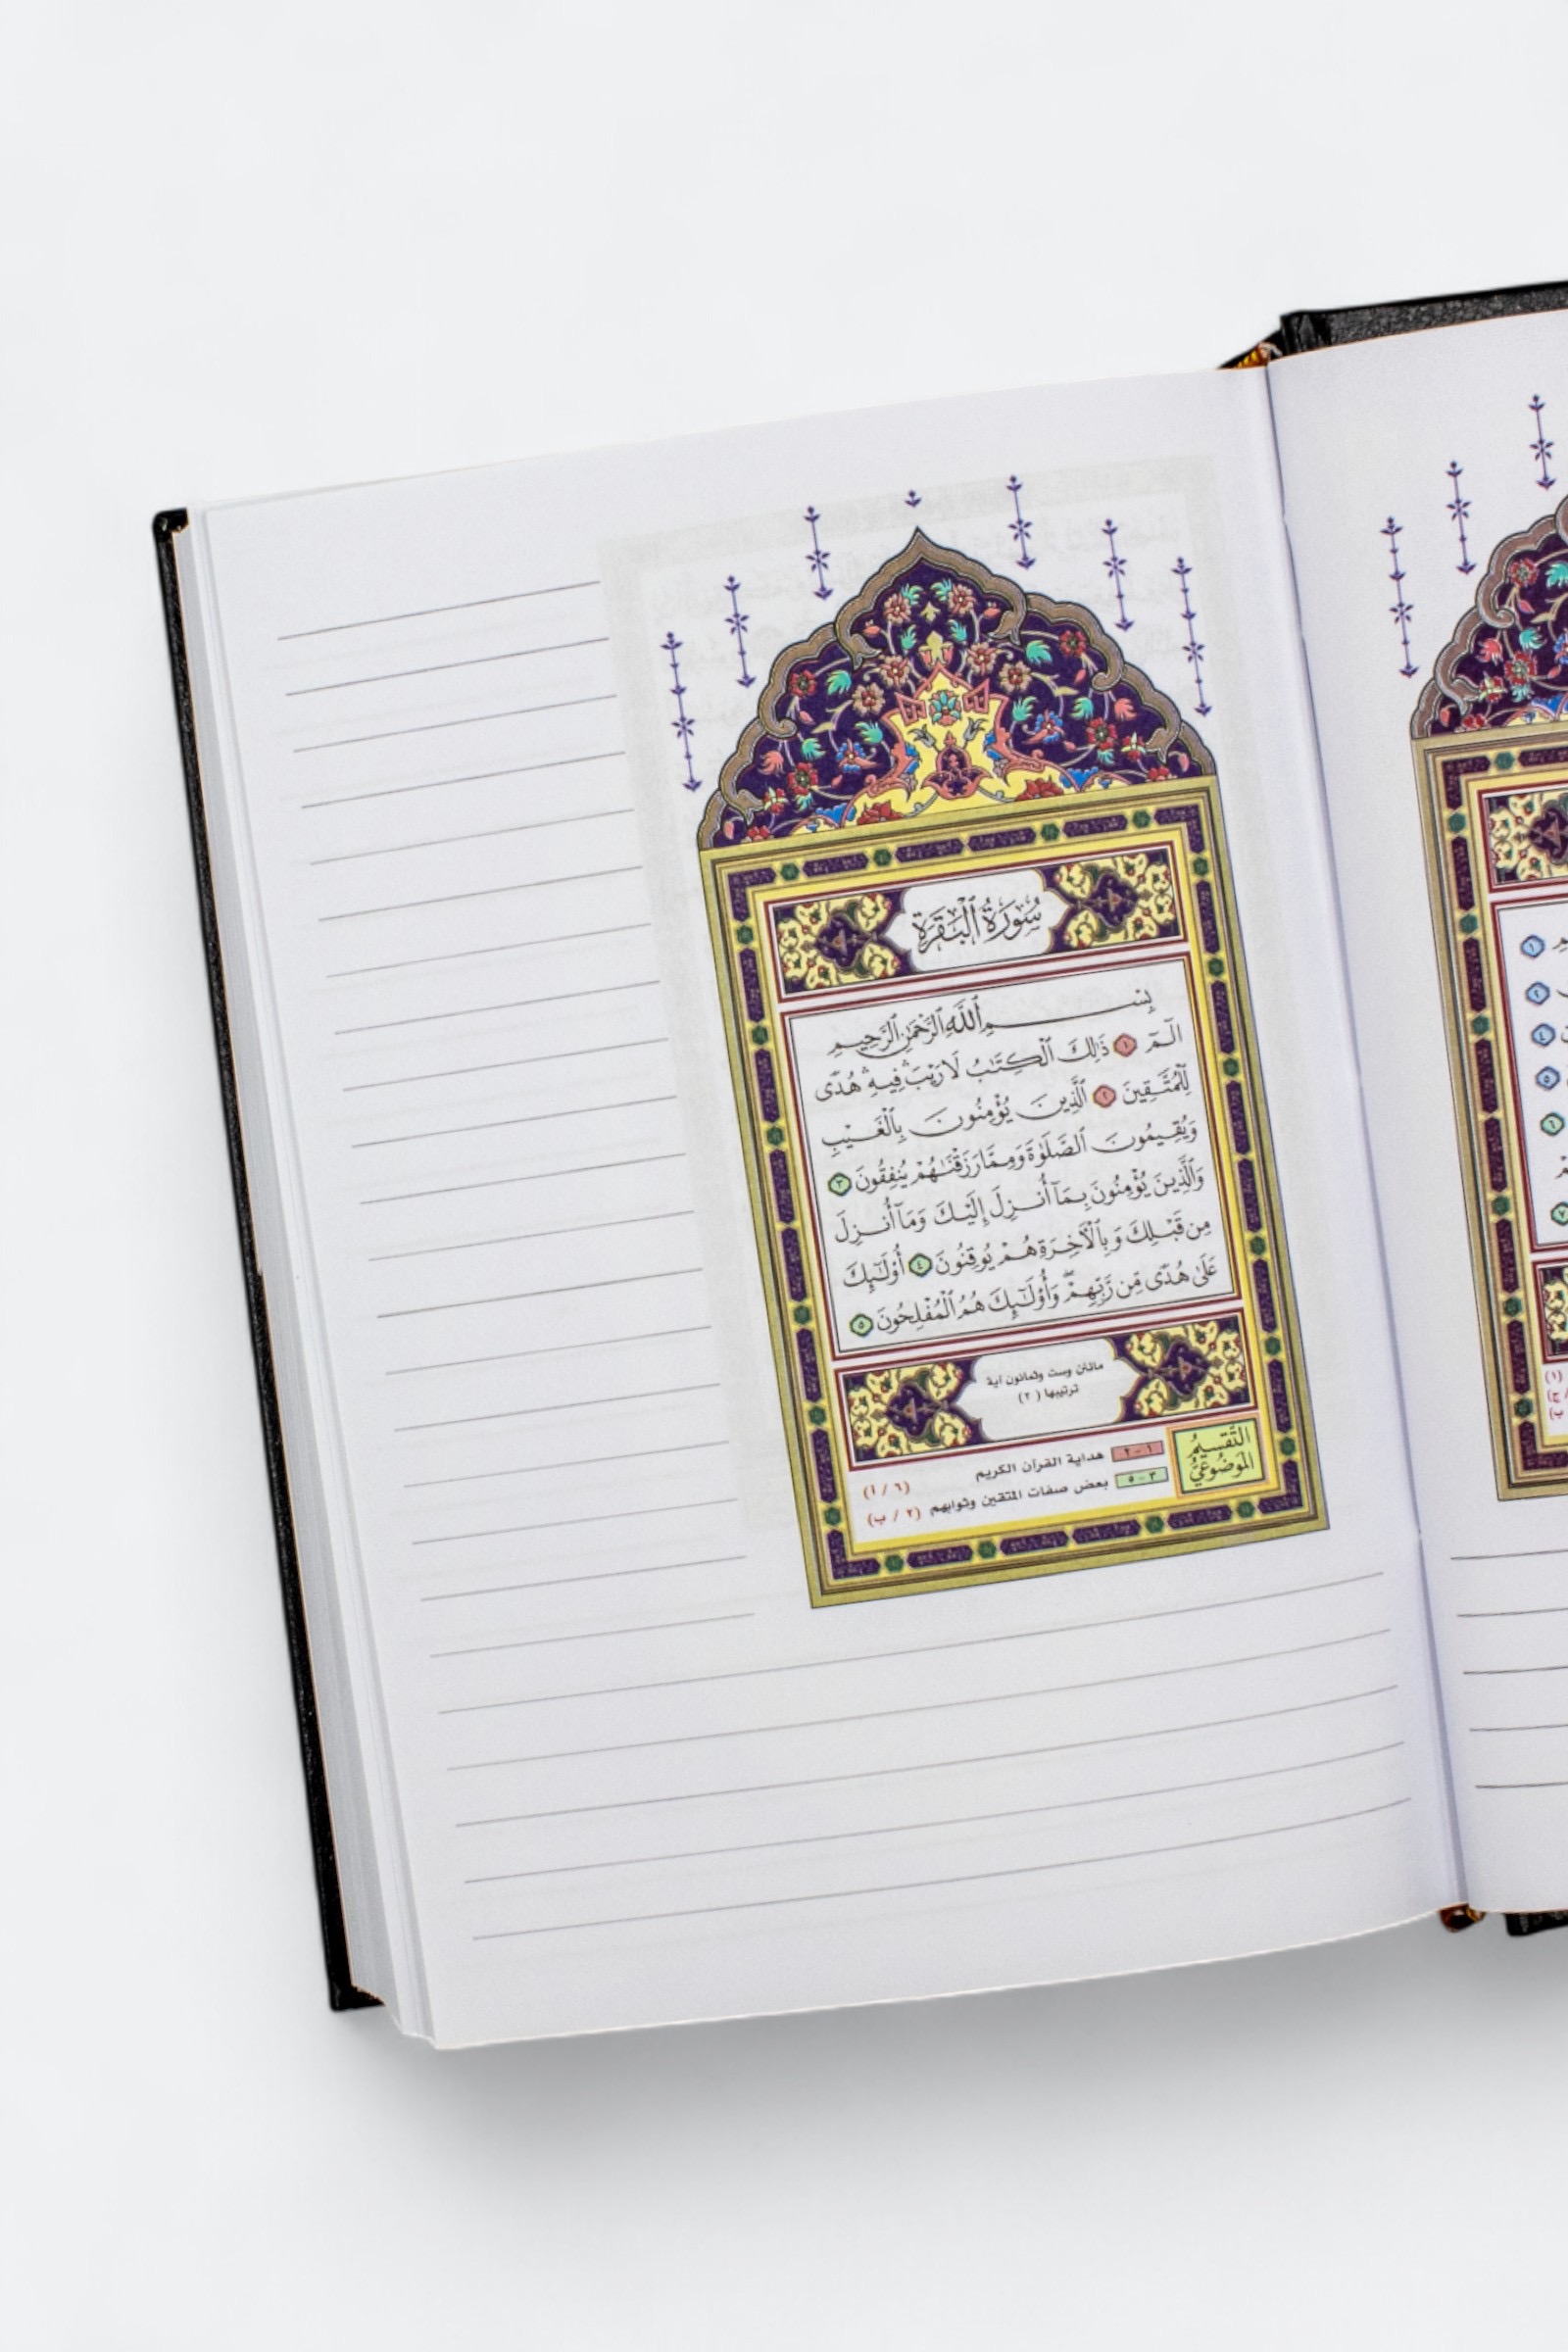 سُورَةُ ٱلْبَقَرَةِ
بِسْمِ ٱللَّهِ ٱلرَّحْمَٰنِ ٱلرَّحِيمِ
الٓمٓ ١ ذَٰلِكَ ٱلْكِتَٰبُ لَا رَيْبَ ۛ فِيهِ ۛ هُدًى
لِّلْمُتَّقِينَ ٢ ٱلَّذِينَ يُؤْمِنُونَ بِٱلْغَيْبِ
وَيُقِيمُونَ ٱلصَّلَوٰةَ وَمِمَّا رَزَقْنَٰهُمْ يُنفِقُونَ ٣
وَٱلَّذِينَ يُؤْمِنُونَ بِمَآ أُنزِلَ إِلَيْكَ وَمَآ أُنزِلَ
مِن قَبْلِكَ وَبِٱلْأَخِرَةِ هُمْ يُوقِنُونَ ٤ أُو۟لَٰٓئِكَ
عَلَىٰ هُدًى مِّن رَّبِّهِمْ ۖ وَأُو۟لَٰٓئِكَ هُمُ ٱلْمُفْلِحُونَ ٥
مائتان وست وثمانون آية
ترتيبها (٢)
التَّقْسِيمُ
المَوْضُوعِيُّ
١-٢ هداية القرآن الكريم (٦ / أ)
٣-٥ بعض صفات المتقين وثوابهم (٢ / ب)
١
٢
٤
٥
٦
٧